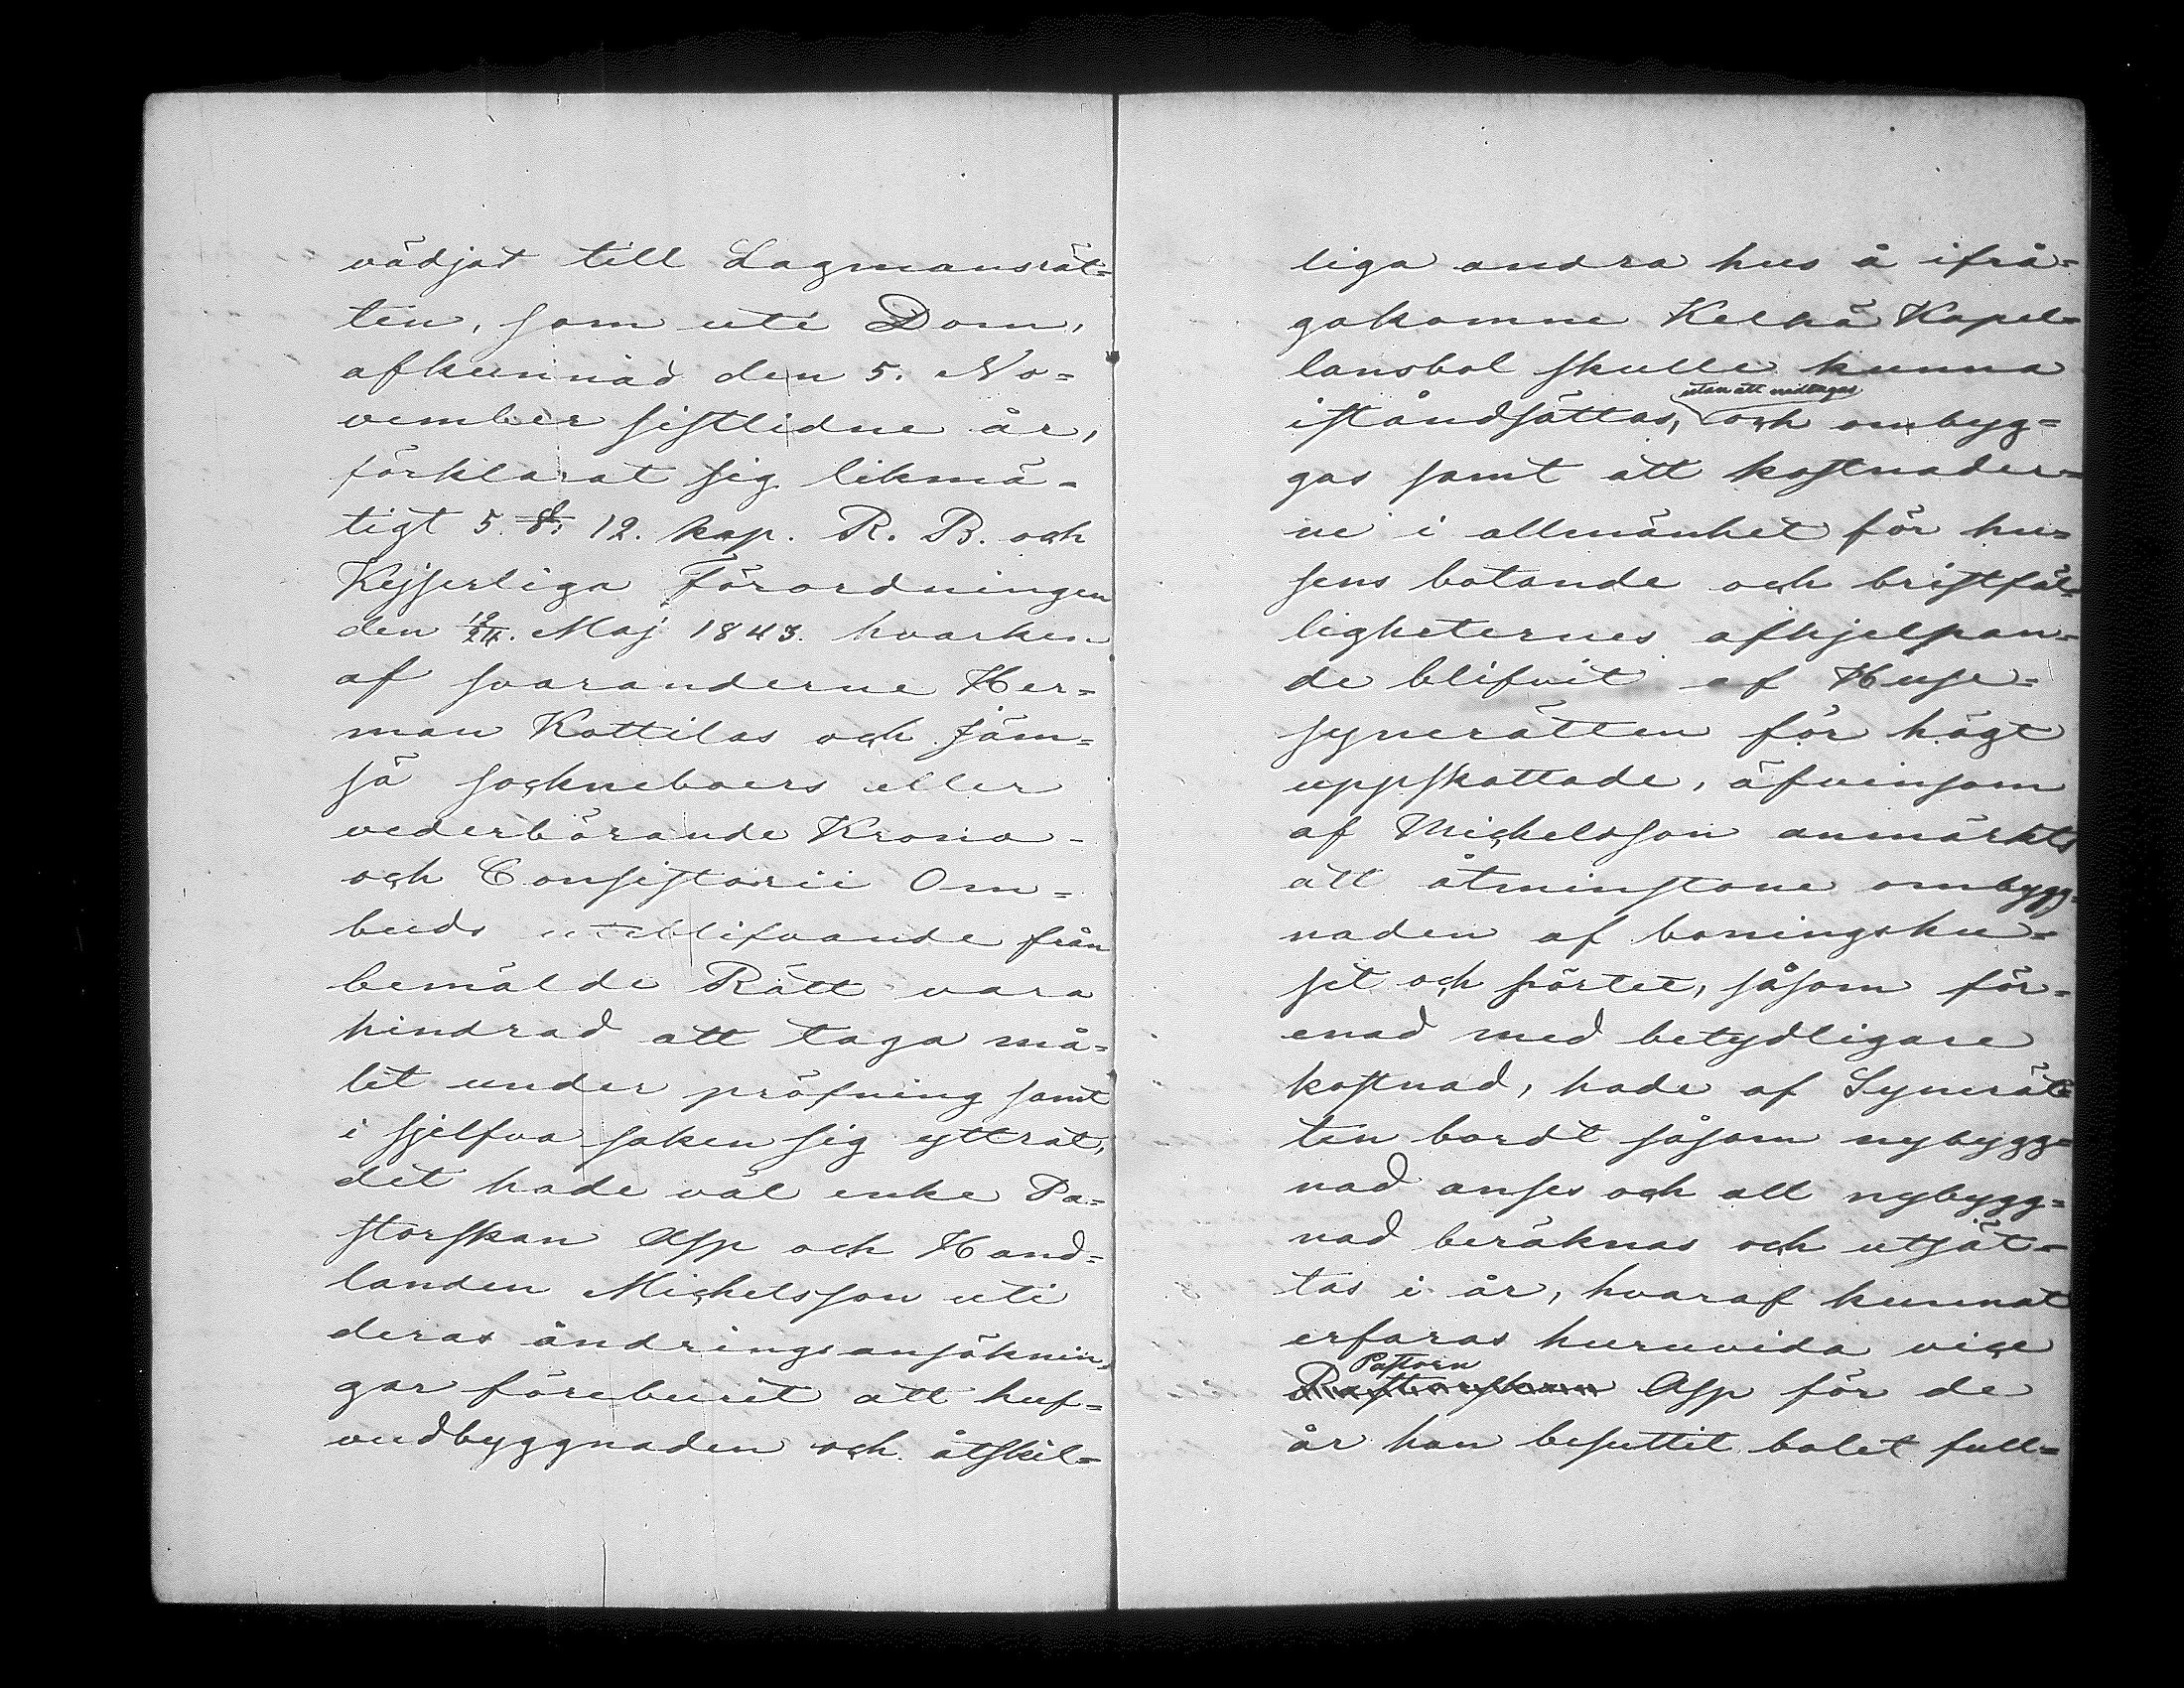 vädjat till Lagmansrät=
ten, som uti Dom,
afkunnad den 5. No=
vember sistlidne år,
förklarat sig likmä=
tigt 5. §. 12. kap. R. B. och
Kejserliga Förordningen
den 12/24. Maj 1843. hvarken
af svaranderne Her=
man Kottilas och Jäm=
sä sockneboers eller
vederbörande Krono=
och Consistorii Om=
buds uteblifvande från
bemälde Rätt vara
hindrad att taga må=
let under pröfning samt
i sjelfva saken sig yttrat,
det hade väl enke Pa=
storskan Asp och Hand=
landen Michelsson uti
deras ändringsansöknin=
gar föreburit att huf=
vudbyggnaden och åtskil=
liga andra hus å ifrå=
gakomne Kelhä Kapel=
lansbol skulle kunna
utan att nedtagas
iståndsättas, och ombyg=
gas samt att kostnader=
ne i allmänhet för hu=
sens botande och bristfäl=
ligheternes afhjelpan=
de blifvit af Huse=
synerätten för högt
uppskattade, äfvensom
af Michelsson anmärkts
att åtminstone ombygg=
naden af boningshu=
set och pörtet, såsom för=
enad med betydligare
kostnad, hade af Synerät=
ten bordt såsom nybygg=
nad anses och all nybygg=
nad beräknas och utsät=
tas i år, hvaraf kunnat
erfaras huruvida vice
Pastorn
Pastorskan Asp för de
år han besuttit bolet full=